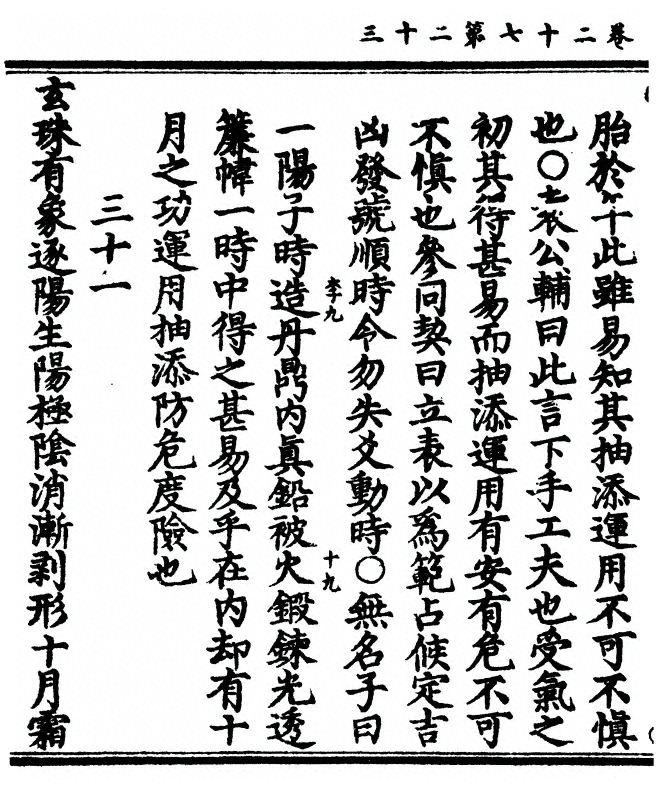 卷二十七第二十三
胎於此雖易知其抽添運用不可不愼
也○袁公輔曰此言下手工夫也受氣之
初其得甚易而抽添運用有安有危不可
不愼也參同契曰立表以爲範占候定吉
凶發號順時令勿失爻動時○無名子曰
李九
十九
一陽子時造丹鼎内眞鉛被火鍛鍊光透
簾幃一時中得之甚易及乎在内却有十
月之功運用抽添防危度險也
三十一
玄珠有象逐陽生陽極陰消漸剥形十月霜